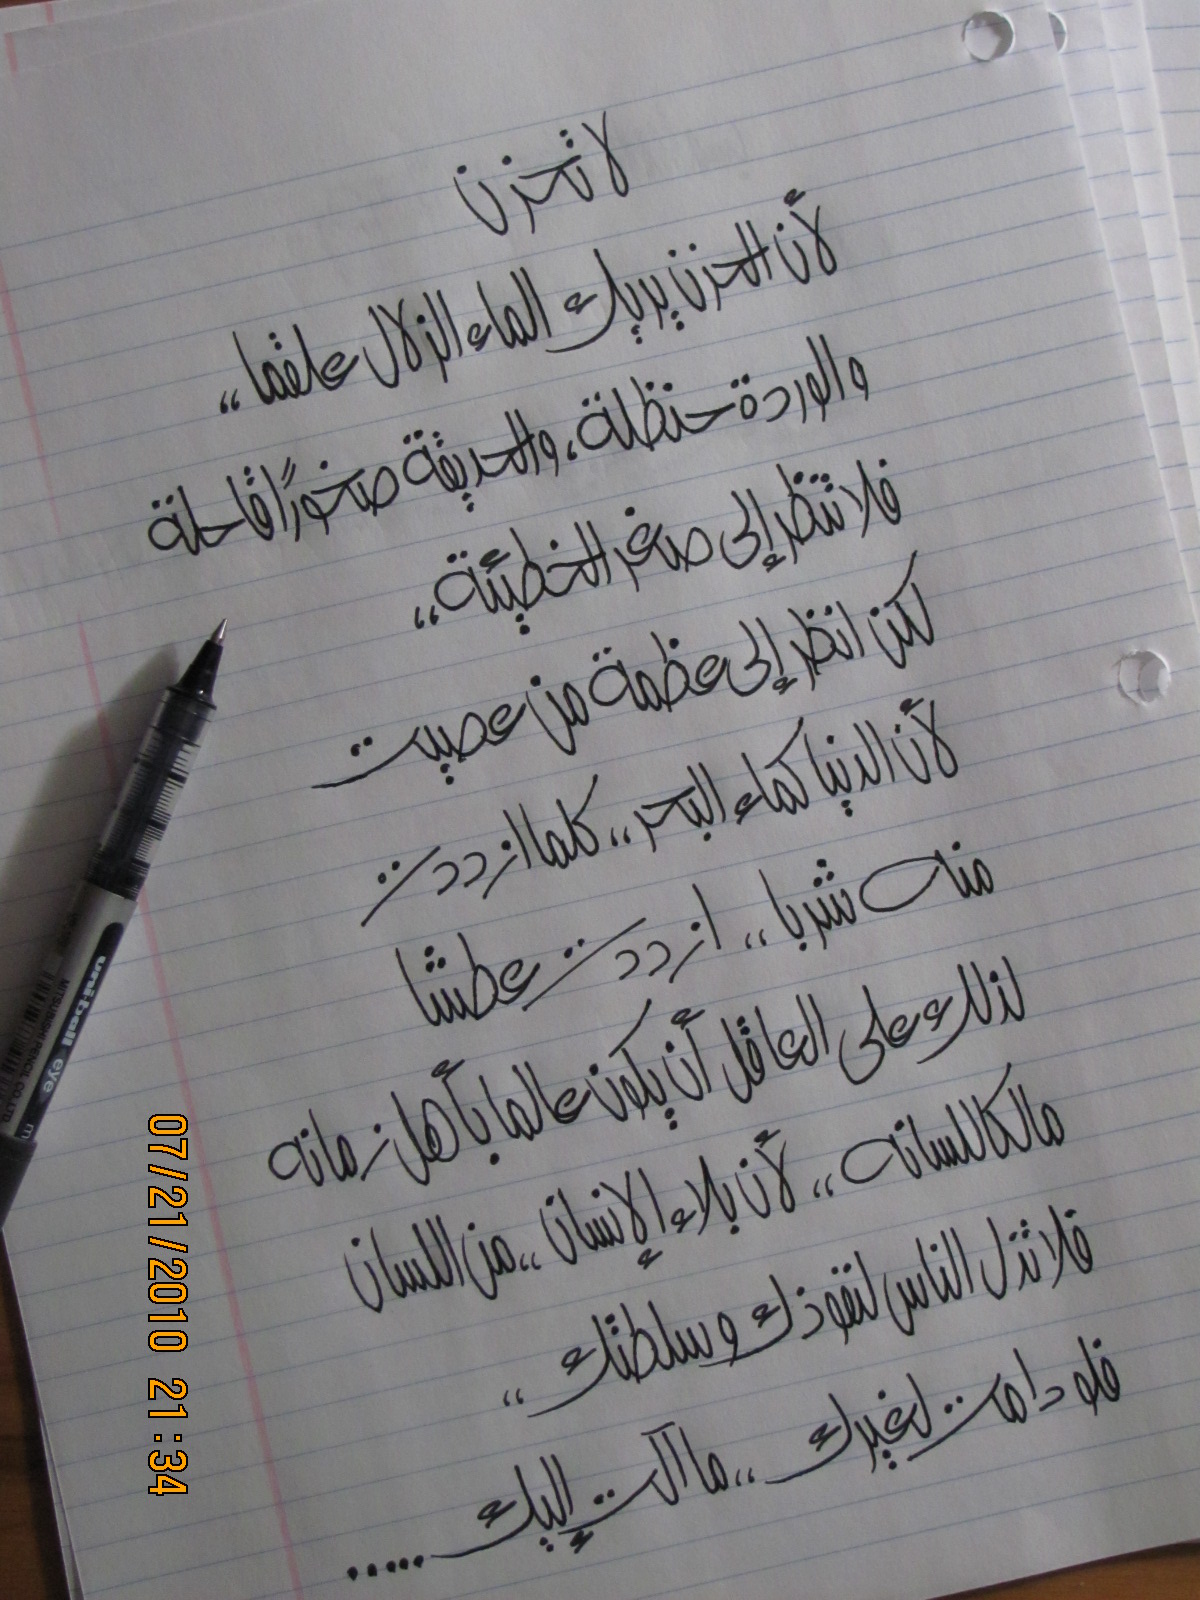 لا تحزن
لأن الحزن يريك الماء الزلال علقما ،،
والوردة حنظلة، والحديقة صخورًا قاحلة
فلا تنظر إلى صغر الخطيئة ،،
لكن انظر إلى عظمة من عصيت
لأن الدنيا كماء البحر ،، كلما ازددت
منه شربا ،، ازددت عطشا
لذلك على العاقل أن يكون عالما بأهل زمانه
مالكا للسانه ،، لأن بلاء الإنسان ،، من اللسان
فلا تذل الناس لنفوذك وسلطتك ،،
فلو دامت لغيرك ،، ما آلت إليك .....
uni-ball eye
MITSUBISHI PENCIL CO. LTD
07/21/2010 21:34